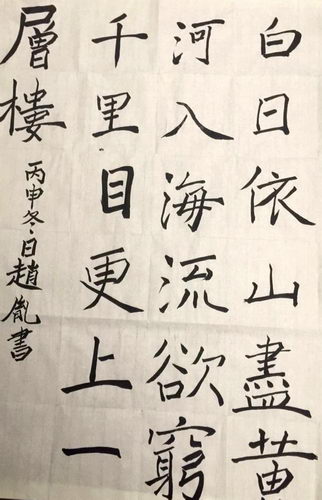 白日依山盡黄
河入海流欲窮
千里目更上一
層樓
丙申冬日趙胤書